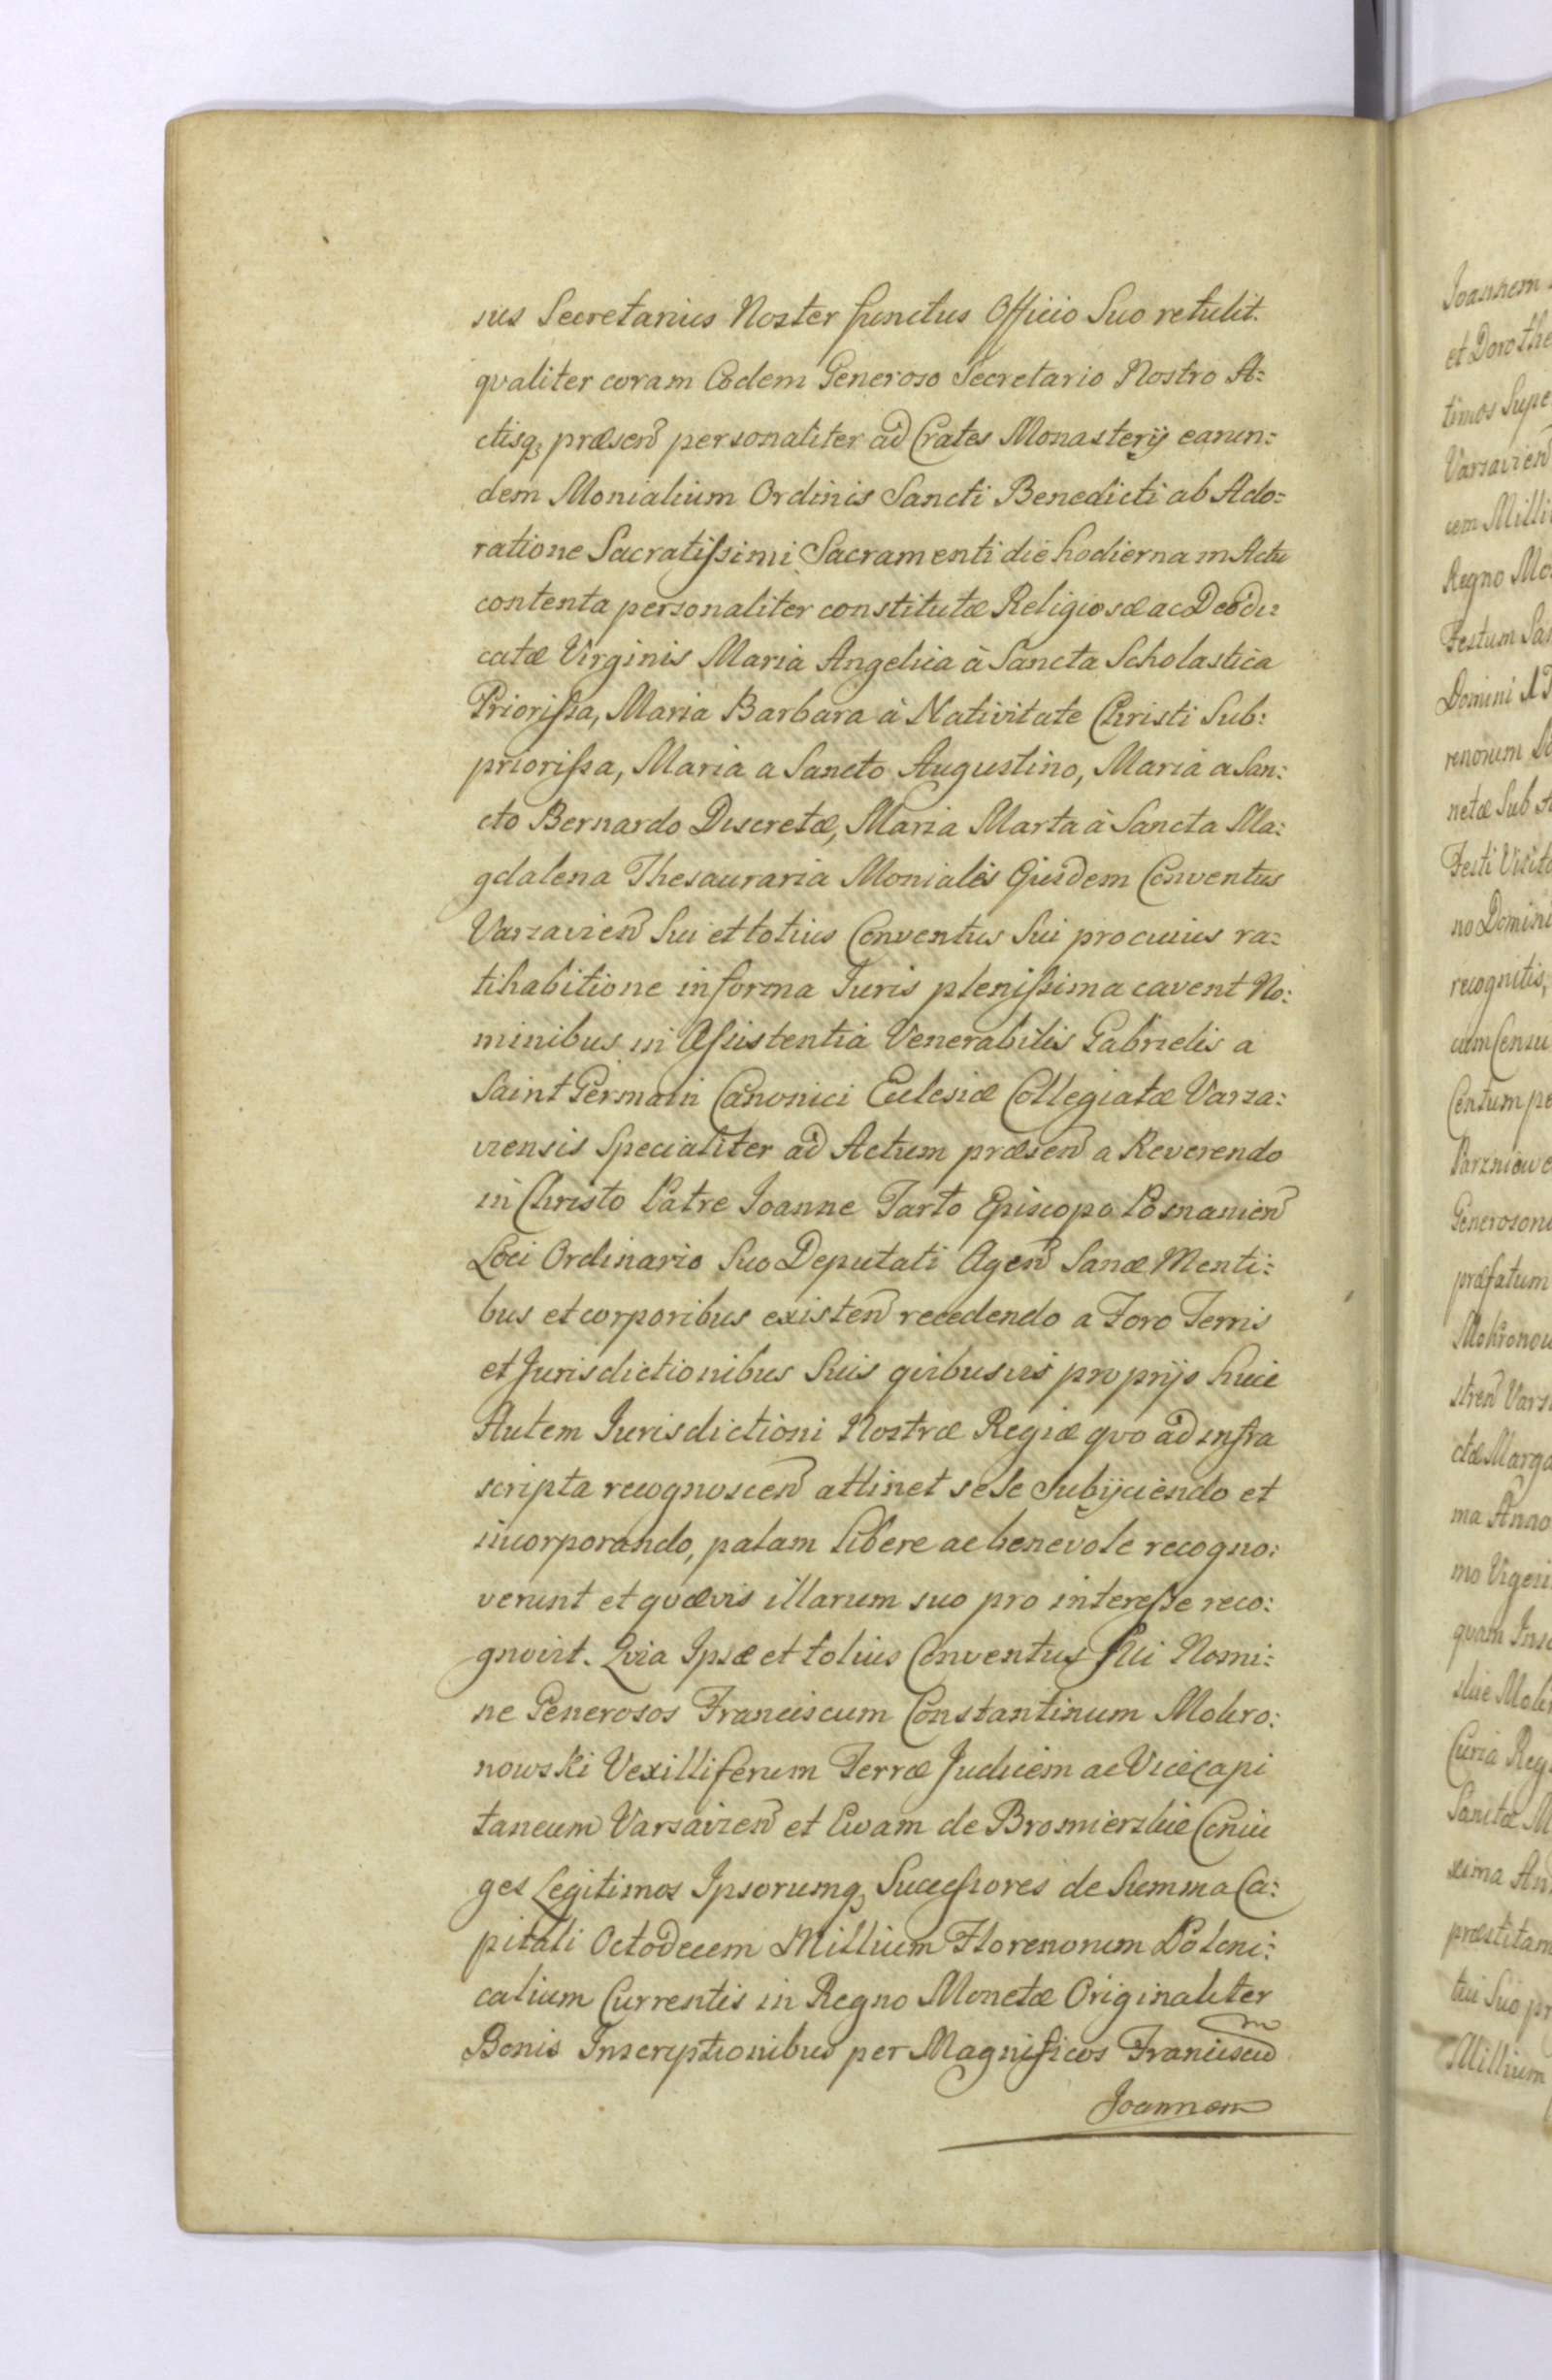 sus Secretarius Noster functus Officio Suo retulit.
qvaliter coram Eodem Generoso Secretario Nostro A=
ctisq, præsen personaliter ad Crates Monasterÿ earun=
dem Monialium Ordinis Sancti Benedicti ab Ado=
ratione Sacratiſsimi Sacramenti die hodierna in Actu
contenta personaliter constitutæ Religiosæ ac Deodi=
catæ Virginis Maria Angelica à Sancta Scholastica
Prioriſsa, Maria Barbara à Nativitate Christi Sub=
prioriſsa, Maria a Sancto Augustino, Maria a San=
cto Bernardo Discretæ, Maria Marta à Sancta Ma=
gdalena Thesauraria Moniales Eiusdem Conventus
Varsavien Sui et totius Conventus Sui pro cuius ra=
tihabitione in forma Iuris pleniſsima cavent No=
minibus in Aſsistentia Venerabilis Gabrielis a
Saint Germain Canonici Eclesiæ Collegiatæ Varsa=
viensis Specialiter ad Actum præsen a Reverendo
in Christo Patre Ioanne Tarto Episcopo Posnanien
Loci Ordinario Suo Deputati Agen Sanæ Menti=
bus et corporibus existen recedendo a Foro Terris
et Jurisdictionibus Suis qvibusvis proprijs huic
Autem Iurisdictioni Nostræ Regiæ qvo ad infra
scripta recognoscen attinet sese Subijciendo et
incorporando, palam libere ac benevole recogno=
verunt et qvævis illarum suo pro intereſse reco=
gnovit. Qvia Ipsæ et totius Conventus Sui Nomi=
ne Generosos Franciscum Constantinum Mokro=
nowski Vexilliferum Terræ Judicem ac Vicecapi
taneum Varsavien et Ewam de Bromierskie Coniu
ges Legitimos Ipsorumq, Succeſsores de Summa Ca=
pitali Octodecem Millium Florenorum Poloni=
calium Currentis in Regno Monetæ Originaliter
Bonis Inscriptionibus per Magnificos Franciscum
Joannem